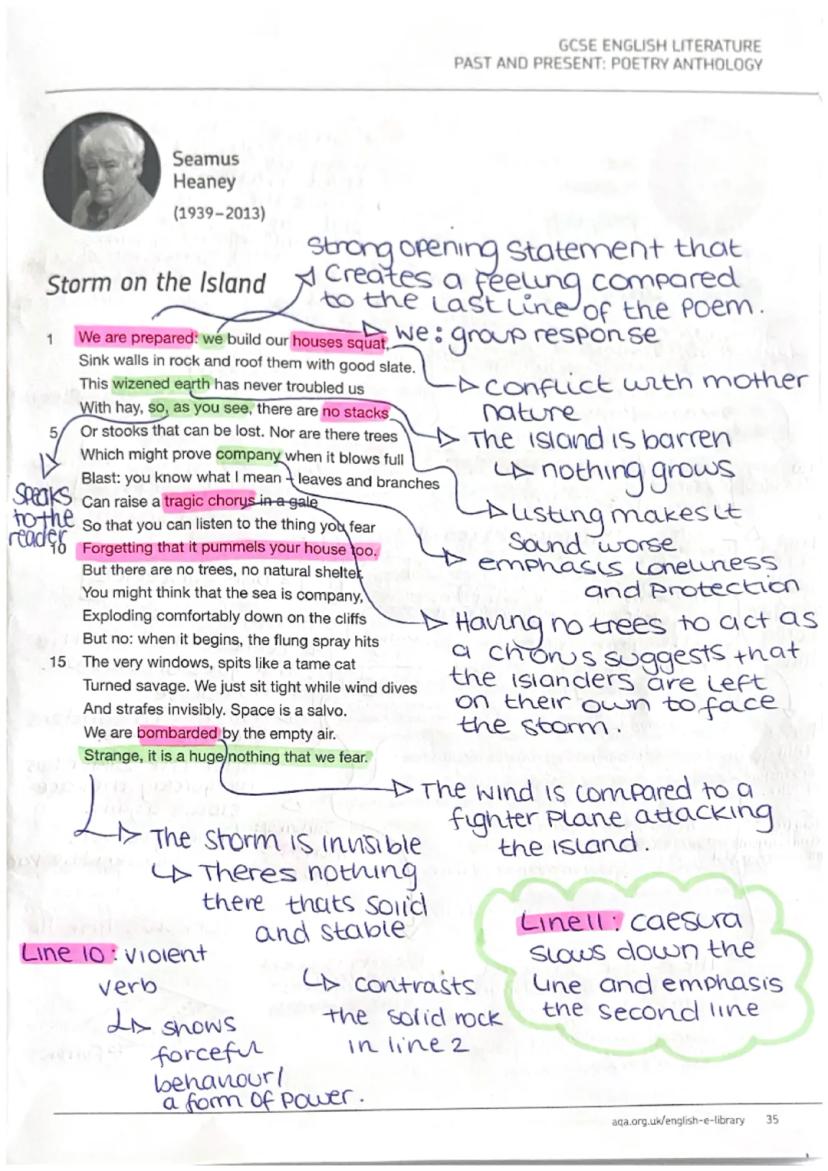 GCSE ENGLISH LITERATURE
PAST AND PRESENT: POETRY ANTHOLOGY
Seamus
Heaney
(1939–2013)
Storm on the Island
Strong opening Statement that
Creates a feeling compared
to the Last Line of the poem.
we: group response
1 We are prepared: we build our houses squat,
Sink walls in rock and roof them with good slate.
This wizened earth has never troubled us
With hay, so, as you see, there are no stacks
5 Or stooks that can be lost. Nor are there trees
Which might prove company when it blows full
Blast: you know what I mean – leaves and branches
Can raise a tragic chorus in a gale
So that you can listen to the thing you fear
10 Forgetting that it pummels your house too.
But there are no trees, no natural shelter.
You might think that the sea is company,
Exploding comfortably down on the cliffs
But no: when it begins, the flung spray hits
15 The very windows, spits like a tame cat
Turned savage. We just sit tight while wind dives
And strafes invisibly. Space is a salvo.
We are bombarded by the empty air.
Strange, it is a huge nothing that we fear.
Conflict with mother
nature
The Island is barren
nothing grows
Listing makes it
Sound worse
emphasis Loneliness
and Protection
Having no trees to act as
a chorus suggests that
the islanders are left
on their own to face
the storm.
Speaks
to the
reader
The wind is compared to a
fighter Plane attacking
the Island
The storm is invisible
Theres nothing
there thats solid
and stable
contrasts
the solid rock
in line 2
Line 10: violent
verb
shows
forceful
behaviour/
a form of power.
Line 11: caesura
slows down the
line and emphasis
the second line
aqa.org.uk/english-e-library 35